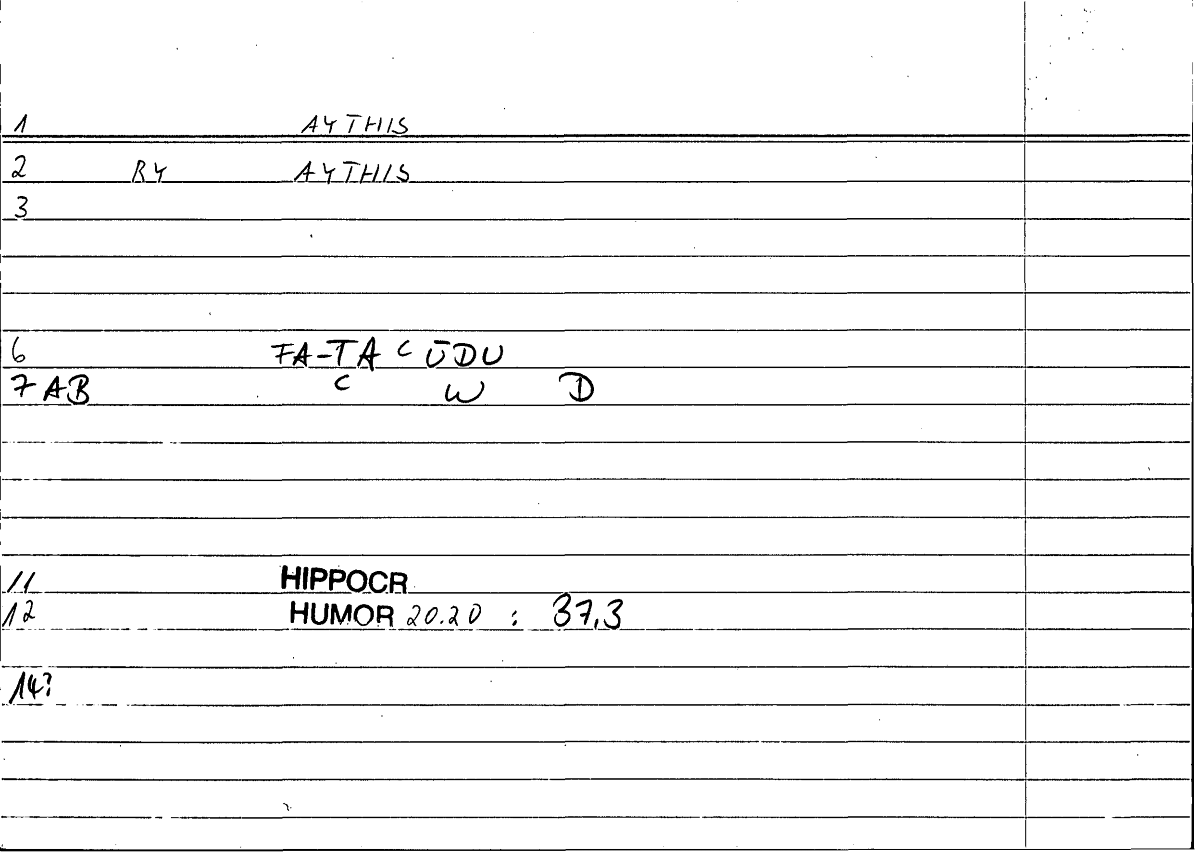 1 AYTHIS
2 BY AYTHIS
3
6 FA-TA C ŪDU
7 AB C W D
11 HIPPOCR
12 HUMOR 20.20 : 37,3
14?